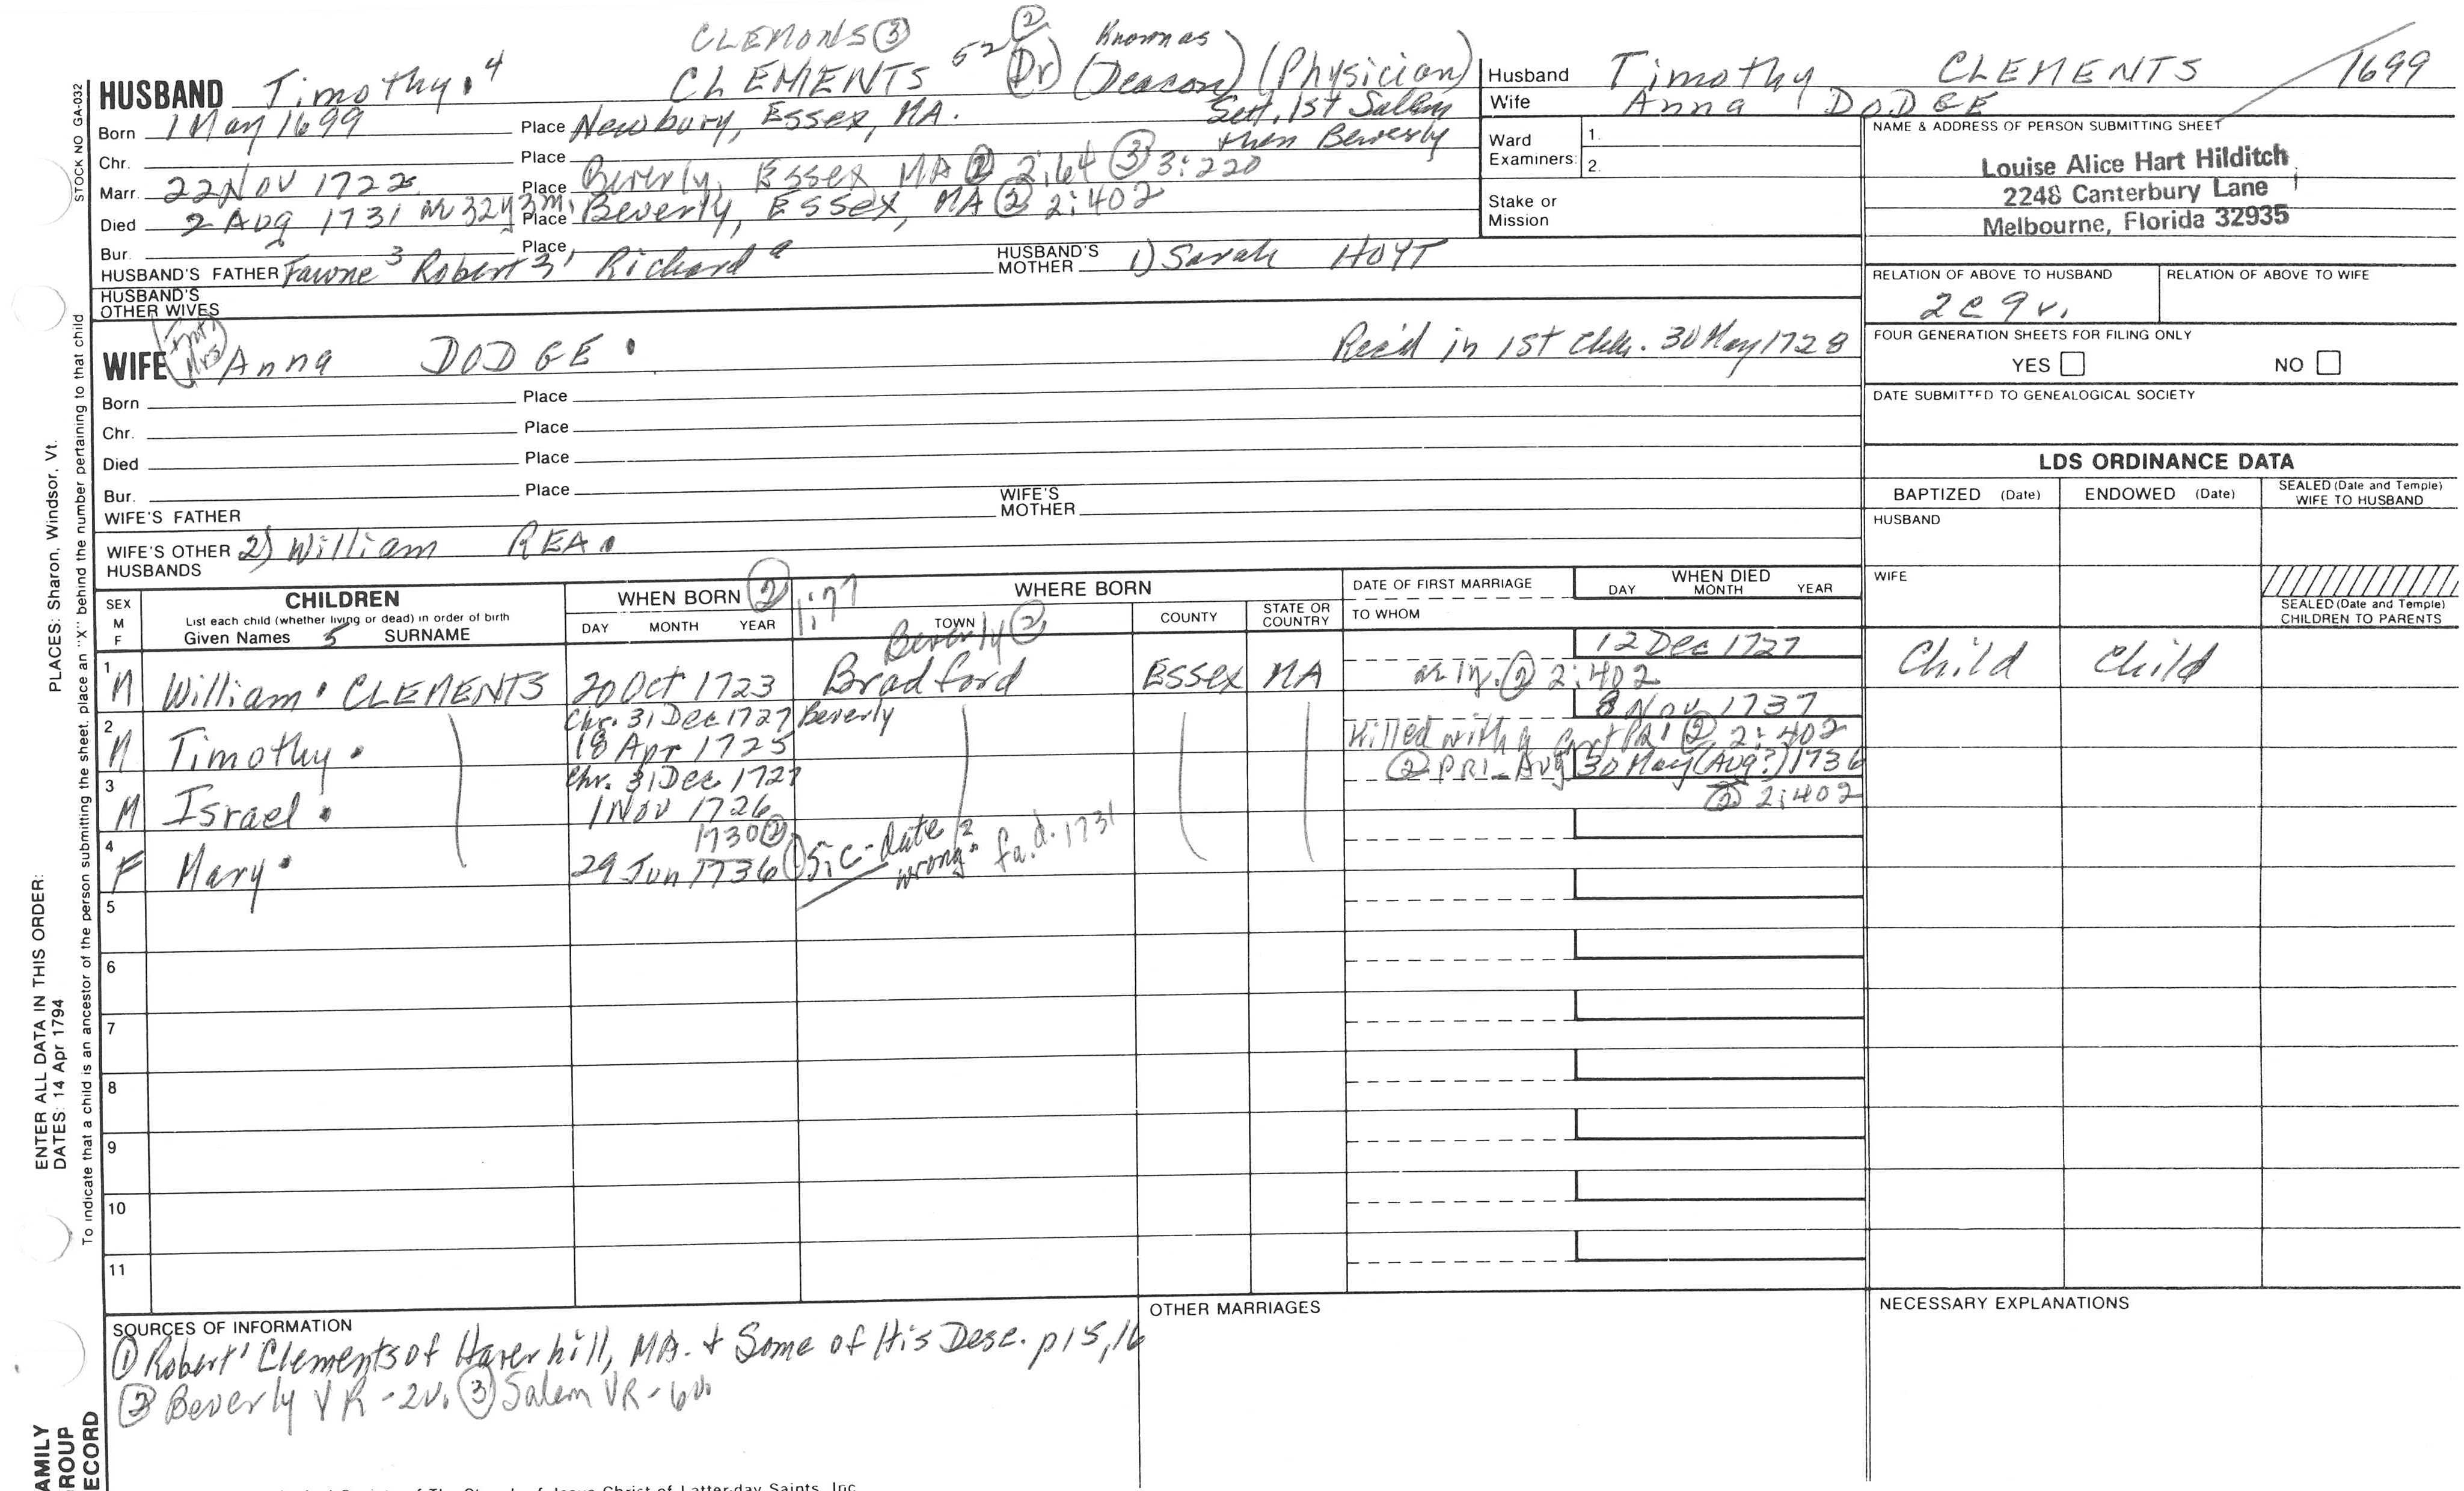 CLEMONS ③ ② Known as
HUSBAND Timothy. 4 CLEMENTS 52 (Dr) (Deacon) (Physician)
Sett. 1st Salem
then Beverly
Born 1 May 1699 Place Newbury, Essex, MA.
Chr. Place
Marr. 22 Nov 1722 Place Beverly, Essex MA ② 2:64 ③ 3:220
Died 2 Aug 1731 32y 3m. Place Beverly, Essex, MA ② 2:402
Bur. Place
HUSBAND'S FATHER Fawne 3 Robert Richard HUSBAND'S MOTHER 1) Sarah HOYT
HUSBAND'S OTHER WIVES
Husband Timothy CLEMENTS 1699
Wife Anna DODGE
Ward Examiners: 1.
2.
Stake or Mission
NAME & ADDRESS OF PERSON SUBMITTING SHEET
Louise Alice Hart Hilditch
2248 Canterbury Lane
Melbourne, Florida 32935
RELATION OF ABOVE TO HUSBAND RELATION OF ABOVE TO WIFE
2c9r.
FOUR GENERATION SHEETS FOR FILING ONLY
YES NO
DATE SUBMITTED TO GENEALOGICAL SOCIETY
WIFE Mrs Anna DODGE. Rec'd in 1st Chh. 30 May 1728
Born Place
Chr. Place
Died Place
Bur. Place
WIFE'S FATHER WIFE'S MOTHER
WIFE'S OTHER HUSBANDS 2) William REA.
LDS ORDINANCE DATA
BAPTIZED (Date) ENDOWED (Date) SEALED (Date and Temple) WIFE TO HUSBAND
HUSBAND
WIFE
SEALED (Date and Temple) CHILDREN TO PARENTS
SEX M F
CHILDREN
List each child (whether living or dead) in order of birth
Given Names 5 SURNAME
WHEN BORN ② 1:77
DAY MONTH YEAR
WHERE BORN
TOWN COUNTY STATE OR COUNTRY
DATE OF FIRST MARRIAGE
TO WHOM
WHEN DIED
DAY MONTH YEAR
Beverly ② 12 Dec 1727
1 M William. CLEMENTS 20 Oct 1723 Bradford Essex MA ② 2:402 Child Child
Chr. 31 Dec 1727 Beverly 8 Nov 1737
2 M Timothy. 18 Apr 1725 Killed with a ② 2:402
Chr. 31 Dec 1727 ② PR1-Aug 30 May (Aug?) 1736
3 M Israel. 1 Nov 1726 ② 2:402
1730 ②
4 F Mary. 29 Jun 1736 ① Sic-date wrong fa. d. 1731
5
6
7
8
9
10
11
SOURCES OF INFORMATION
① Robert' Clements of Haverhill, MA. + Some of His Desc. p15,16
② Beverly VR - 2v. ③ Salem VR - 6v.
OTHER MARRIAGES
NECESSARY EXPLANATIONS
STOCK NO GA-032
PLACES: Sharon, Windsor, Vt.
To indicate that a child is an ancestor of the person submitting the sheet, place an "X" behind the number pertaining to that child
ENTER ALL DATA IN THIS ORDER:
DATES: 14 Apr 1794
AMILY
ROUP
ECORD
of The Church of Jesus Christ of Latter-day Saints, Inc